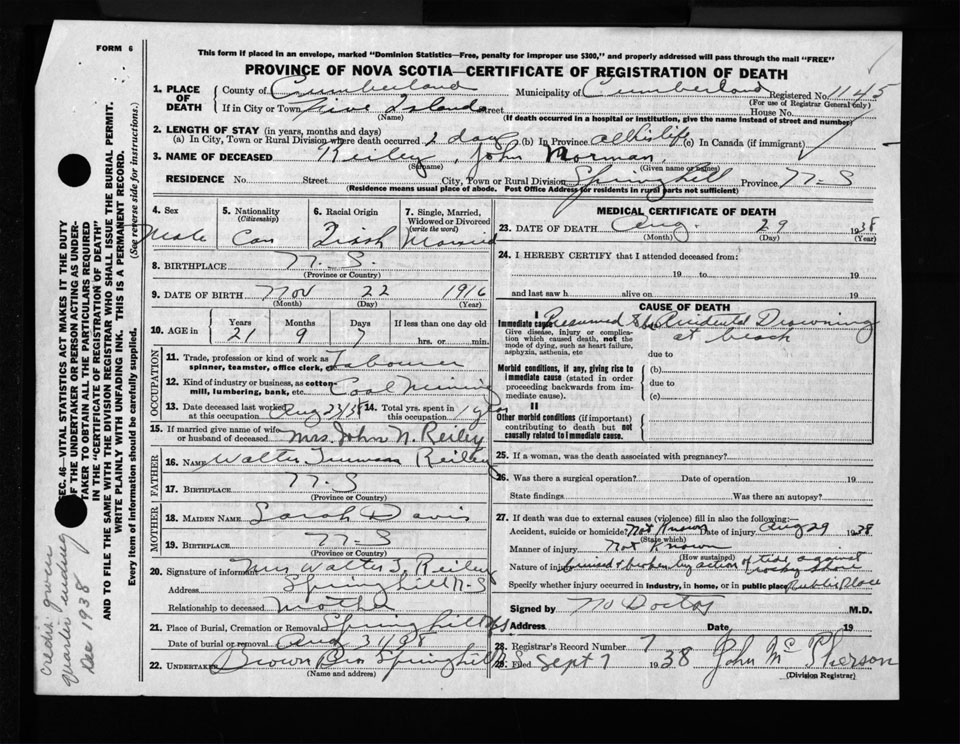 FORM 6
This form if placed in an envelope, marked "Dominion Statistics—Free, penalty for improper use $300," and properly addressed will pass through the mail "FREE"
PROVINCE OF NOVA SCOTIA—CERTIFICATE OF REGISTRATION OF DEATH
1. PLACE OF DEATH
County of Cumberland Municipality of Cumberland Registered No. 1145
(For use of Registrar General only)
If in City or Town Five Islands Street House No.
(Name) (If death occurred in a hospital or institution, give the name instead of street and number)
2. LENGTH OF STAY (in years, months and days)
(a) In City, Town or Rural Division where death occurred 2 days (b) In Province all his life (c) In Canada (if immigrant)
3. NAME OF DECEASED Reiley, John Norman,
(Surname) (Given name or names)
RESIDENCE No. Street City, Town or Rural Division Springhill Province N-S
(Residence means usual place of abode. Post Office Address for residents in rural parts not sufficient)
4. Sex Male
5. Nationality (Citizenship) Can
6. Racial Origin Irish
7. Single, Married, Widowed or Divorced (write the word) Married
8. BIRTHPLACE N.S.
(Province or Country)
9. DATE OF BIRTH Nov 22 1916
(Month) (Day) (Year)
10. AGE in Years 21 Months 9 Days 7 If less than one day old
hrs. or min.
OCCUPATION
11. Trade, profession or kind of work as spinner, teamster, office clerk, Labourer
12. Kind of industry or business, as cotton-mill, lumbering, bank, etc. Coal Mining
13. Date deceased last worked at this occupation Aug 27/38 14. Total yrs. spent in this occupation 1 y
15. If married give name of wife or husband of deceased Mrs. John N. Reiley
FATHER
16. NAME Walter Reiley
17. BIRTHPLACE N-S
(Province or Country)
MOTHER
18. MAIDEN NAME Sarah Davis
19. BIRTHPLACE N-S
(Province or Country)
20. Signature of informant Mrs Walter T. Reiley
Address Springhill N-S
Relationship to deceased Mother
21. Place of Burial, Cremation or Removal Springhill NS
Date of burial or removal Aug 31/38
22. UNDERTAKER Brown Bros Springhill N.S
(Name and address)
MEDICAL CERTIFICATE OF DEATH
23. DATE OF DEATH Aug. 29 1938
(Month) (Day) (Year)
24. I HEREBY CERTIFY that I attended deceased from:
19 to 19
and last saw h alive on 19
CAUSE OF DEATH
I
Immediate cause Presumed to be Accidental Drowning
at beach
Give disease, injury or complication which caused death, not the mode of dying, such as heart failure, asphyxia, asthenia, etc
due to
Morbid conditions, if any, giving rise to immediate cause (stated in order proceeding backwards from immediate cause).
(b)
due to
(c)
II
Other morbid conditions (if important) contributing to death but not causally related to immediate cause.
25. If a woman, was the death associated with pregnancy?
26. Was there a surgical operation? Date of operation 19
State findings Was there an autopsy?
27. If death was due to external causes (violence) fill in also the following:—
Accident, suicide or homicide? Not Known Date of injury Aug 29 1938
(State which)
Manner of injury Not Known
(How sustained)
Nature of injury bruised & broken by action of tide against
rocky shore
Specify whether injury occurred in industry, in home, or in public place Public Place
Signed by No Doctor M.D.
Address Date 19
28. Registrar's Record Number 7
29. Filed Sept 7 1938 John McPherson
(Division Registrar)
SEC. 46—VITAL STATISTICS ACT MAKES IT THE DUTY
OF THE UNDERTAKER OR PERSON ACTING AS UNDER-
TAKER TO OBTAIN ALL THE PARTICULARS REQUIRED
IN THE "CERTIFICATE OF REGISTRATION OF DEATH"
AND TO FILE THE SAME WITH THE DIVISION REGISTRAR WHO SHALL ISSUE THE BURIAL PERMIT.
WRITE PLAINLY WITH UNFADING INK. THIS IS A PERMANENT RECORD.
Every item of information should be carefully supplied. (See reverse side for instructions.)
Credit given
Quarter ending
Dec 1938